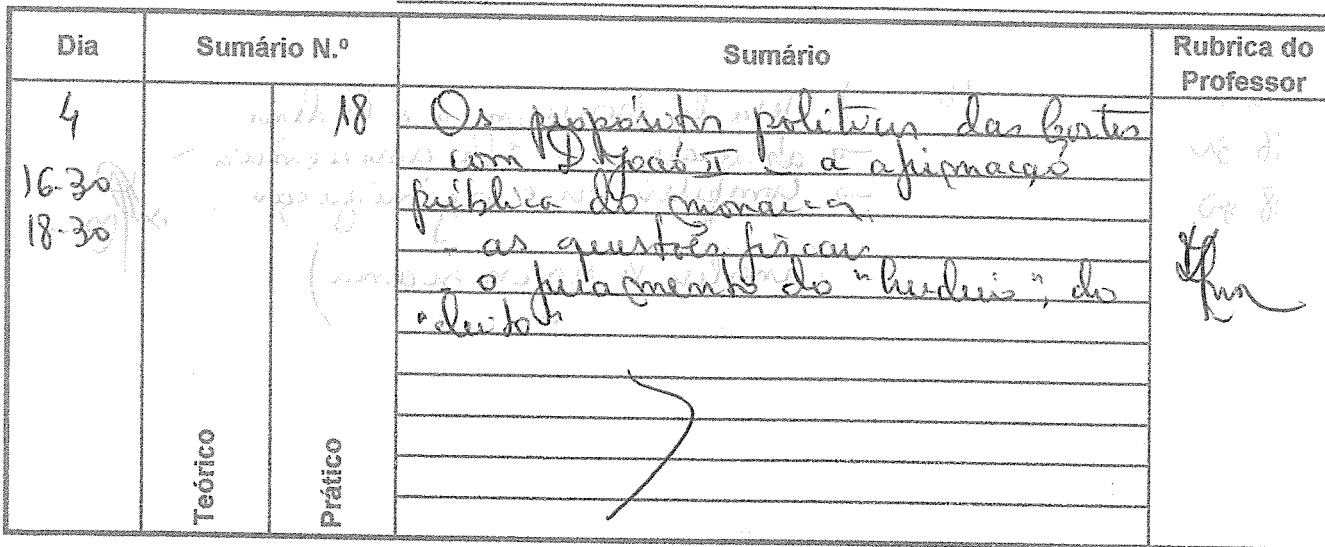 Dia
Sumário N.º
Sumário
Rubrica do
Professor
4
16-30
18-30
18
Os propósitos políticos das Cortes
com D. João I e a afirmação
pública do monarca.
- as questões fiscais
- o juramento do "herdeiro", do
"eleito"
Teórico
Prático